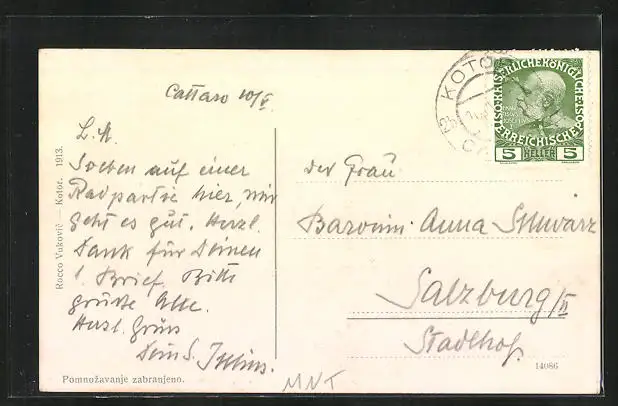 Cattaro 10/V.
L. A.
Soeben auf einer
Radpartie hier, mir
geht es gut. Herzl.
Dank für Deinen
l. Brief. Bitte
grüße Alle.
Herzl. Gruß
Dein S. Julius.
Rocco Vuković — Kotor. 1913.
Pomnožavanje zabranjeno.
KOTOR
KAISERLICHE KÖNIGLICHE
ÖSTERREICHISCHE POST
5 HELLER 5
der Frau
Baronin Anna Schwarz
Salzburg/II
Stadlhof
14086
MNT